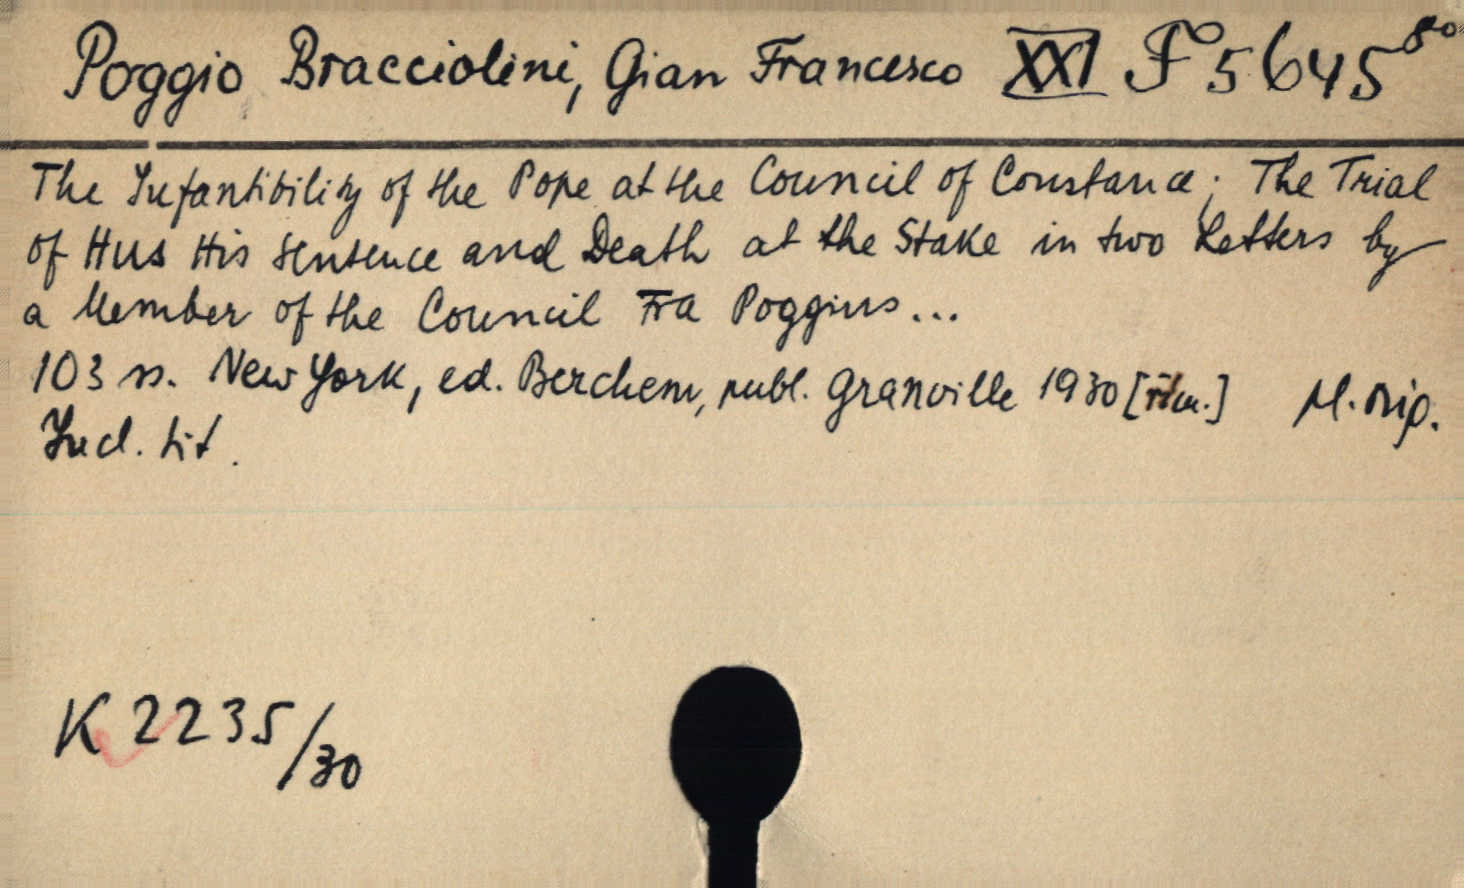 Poggio Bracciolini, Gian Francesco XXI F 5645 8°
The Infantibility of the Pope at the Council of Constance; The Trial
of Hus His Sentence and Death at the Stake in two Letters by
a Member of the Council Fra Poggius...
103 ss. New York, ed. Berchem, publ. Granville 1930 M. orip.
Incl. tit.
K 2235/30